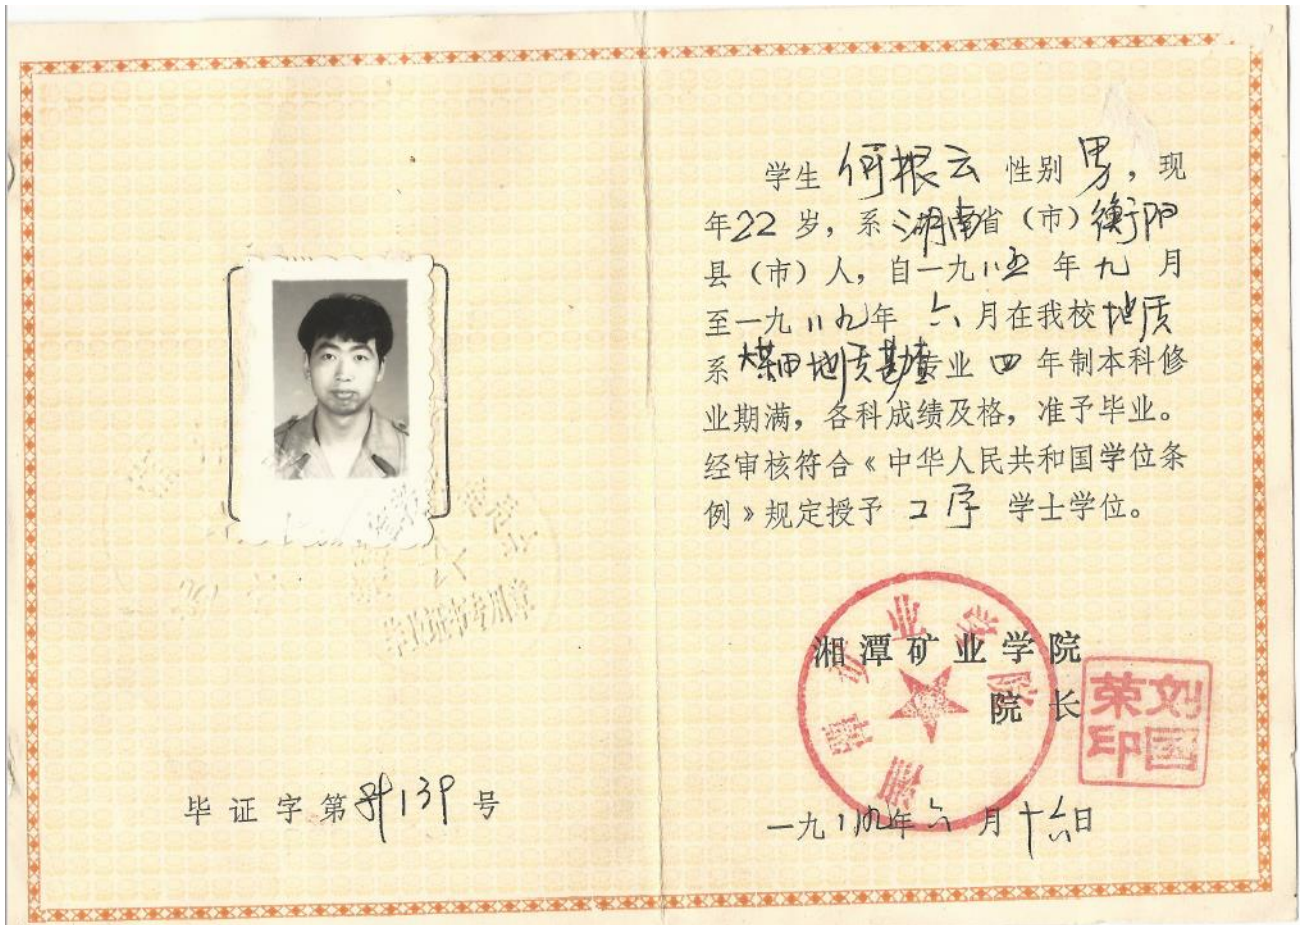 毕业证书专用章
毕证字第89139号
学生 何根云 性别 男，现
年22岁，系 湖南省（市）衡阳
县（市）人，自一九八五年九月
至一九八九年六月在我校地质
系煤田地质勘查专业四年制本科修
业期满，各科成绩及格，准予毕业。
经审核符合《中华人民共和国学位条
例》规定授予 工学 学士学位。
湘潭矿业学院
院长
湘潭矿业学院
刘国荣印
一九八九年六月十六日